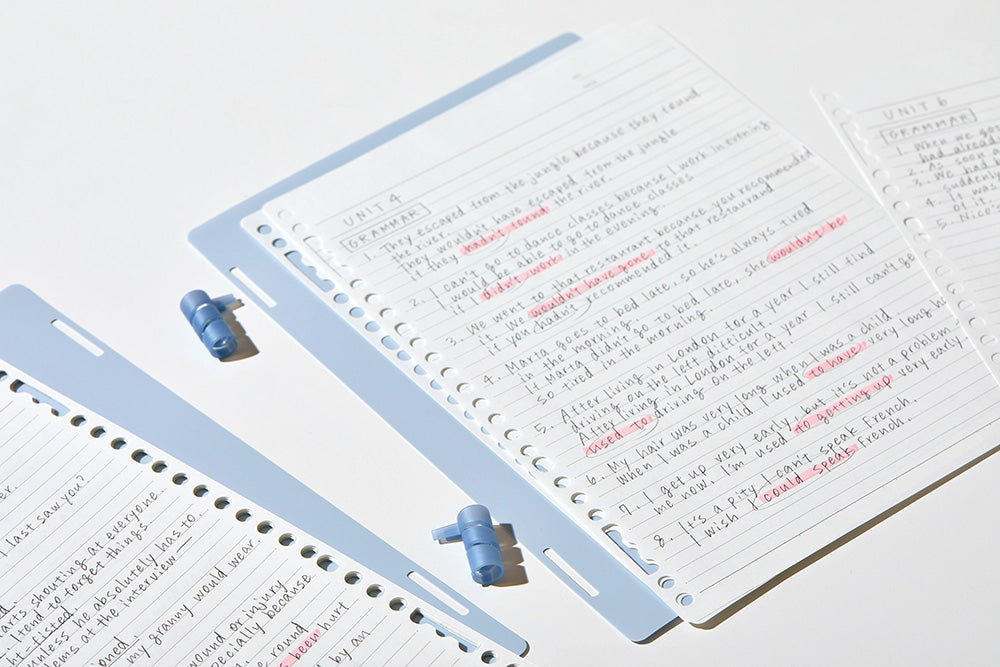 UNIT 4
GRAMMAR
1. They escaped from the jungle because they found
the river.
They wouldn't have escaped from the jungle
if they hadn't found the river.
2. I can't go to dance classes because I work in evening
I would be able to go to dance classes
if I didn't work in the evening.
3. We went to that restaurant because you recommended
it. We wouldn't have gone to that restaurand
if you hadn't recommended it.
4. Marta goes to bed late, so he's always tired
in the morning.
If Marta didn't go to bed late, she wouldn't be
so tired in the morning.
5. After living in London for a year I still find
driving on the left difficult.
After living in London for a year I still can't ge
used to driving on the left.
6. My hair was very long when I was a child
When I was a child I used to have very long
7. I get up very early, but it's not a problem
me now. I'm used to getting up very early.
8. It's a pity I can't speak French.
I wish I could speak French.
UNIT 6
GRAMMAR
1. When we got
had already
2. As soon a
3. We had
suddenly
4. It w
of it.
5. Nico
I last saw you?
arts shouting at everyone.
I tend to forget things
fisted.
unless he absolutely has to.
lems at the interview
my granny would wear
wound or injury
specially because
round
been hurt
by an